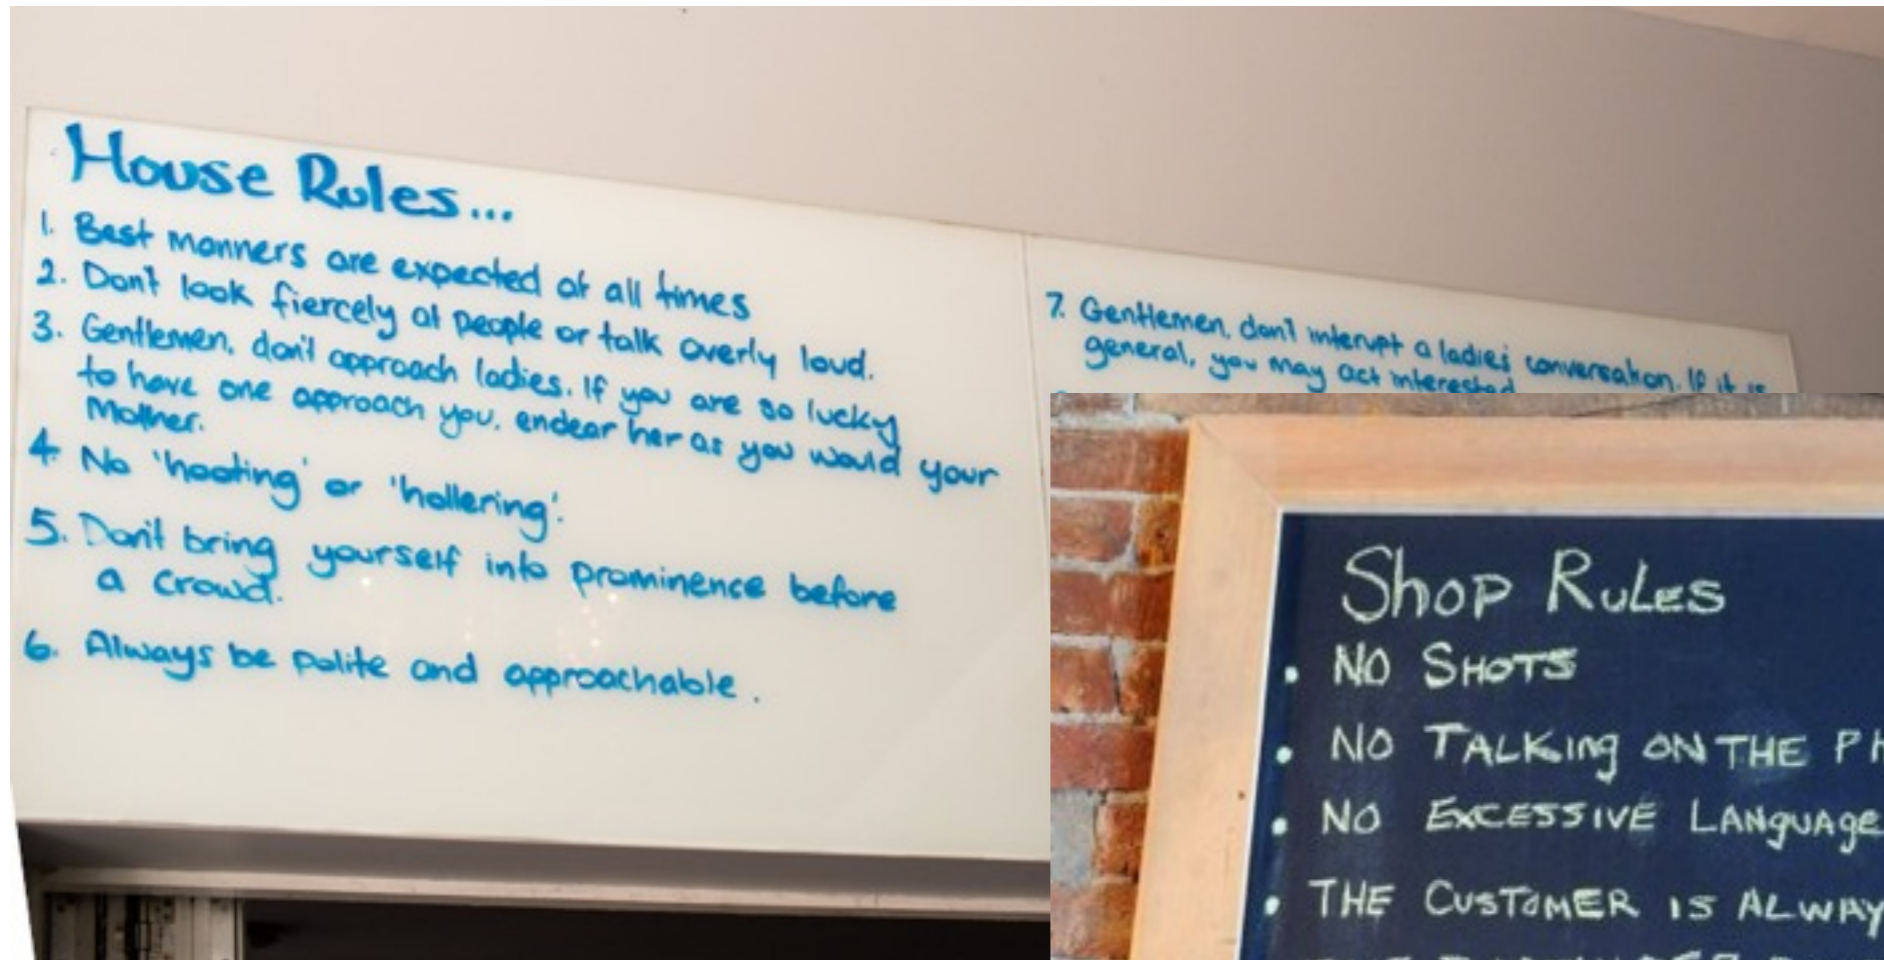 House Rules...
1. Best manners are expected at all times
2. Don't look fiercely at people or talk overly loud.
3. Gentlemen, don't approach ladies. If you are so lucky
to have one approach you, endear her as you would your
Mother.
4. No 'hooting' or 'hollering'.
5. Don't bring yourself into prominence before
a crowd.
6. Always be polite and approachable.
7. Gentlemen, don't interupt a ladies conversation. If it is
general, you may act interested
Shop Rules
• NO SHOTS
• NO TALKing ON THE PH
• NO EXCESSIVE LANguAge
• THE CUSTOMER IS ALWAY